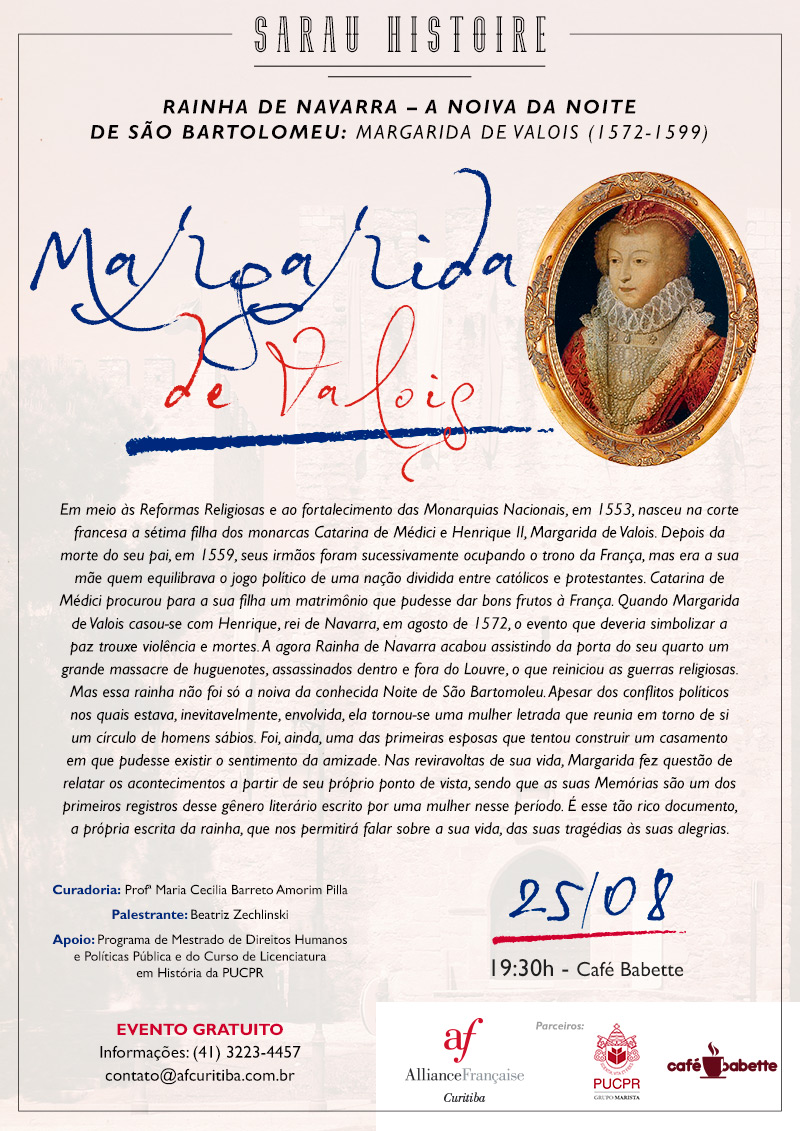 SARAU HISTOIRE
RAINHA DE NAVARRA – A NOIVA DA NOITE
DE SÃO BARTOLOMEU: MARGARIDA DE VALOIS (1572-1599)
Margarida
de Valois
Em meio às Reformas Religiosas e ao fortalecimento das Monarquias Nacionais, em 1553, nasceu na corte
francesa a sétima filha dos monarcas Catarina de Médici e Henrique II, Margarida de Valois. Depois da
morte do seu pai, em 1559, seus irmãos foram sucessivamente ocupando o trono da França, mas era a sua
mãe quem equilibrava o jogo político de uma nação dividida entre católicos e protestantes. Catarina de
Médici procurou para a sua filha um matrimônio que pudesse dar bons frutos à França. Quando Margarida
de Valois casou-se com Henrique, rei de Navarra, em agosto de 1572, o evento que deveria simbolizar a
paz trouxe violência e mortes. A agora Rainha de Navarra acabou assistindo da porta do seu quarto um
grande massacre de huguenotes, assassinados dentro e fora do Louvre, o que reiniciou as guerras religiosas.
Mas essa rainha não foi só a noiva da conhecida Noite de São Bartomoleu. Apesar dos conflitos políticos
nos quais estava, inevitavelmente, envolvida, ela tornou-se uma mulher letrada que reunia em torno de si
um círculo de homens sábios. Foi, ainda, uma das primeiras esposas que tentou construir um casamento
em que pudesse existir o sentimento da amizade. Nas reviravoltas de sua vida, Margarida fez questão de
relatar os acontecimentos a partir de seu próprio ponto de vista, sendo que as suas Memórias são um dos
primeiros registros desse gênero literário escrito por uma mulher nesse período. É esse tão rico documento,
a própria escrita da rainha, que nos permitirá falar sobre a sua vida, das suas tragédias às suas alegrias.
Curadoria: Profª Maria Cecilia Barreto Amorim Pilla
Palestrante: Beatriz Zechlinski
Apoio: Programa de Mestrado de Direitos Humanos
e Políticas Pública e do Curso de Licenciatura
em História da PUCPR
25/08
19:30h - Café Babette
EVENTO GRATUITO
Informações: (41) 3223-4457
contato@afcuritiba.com.br
af
AllianceFrançaise
Curitiba
Parceiros:
PUCPR
GRUPO MARISTA
café babette